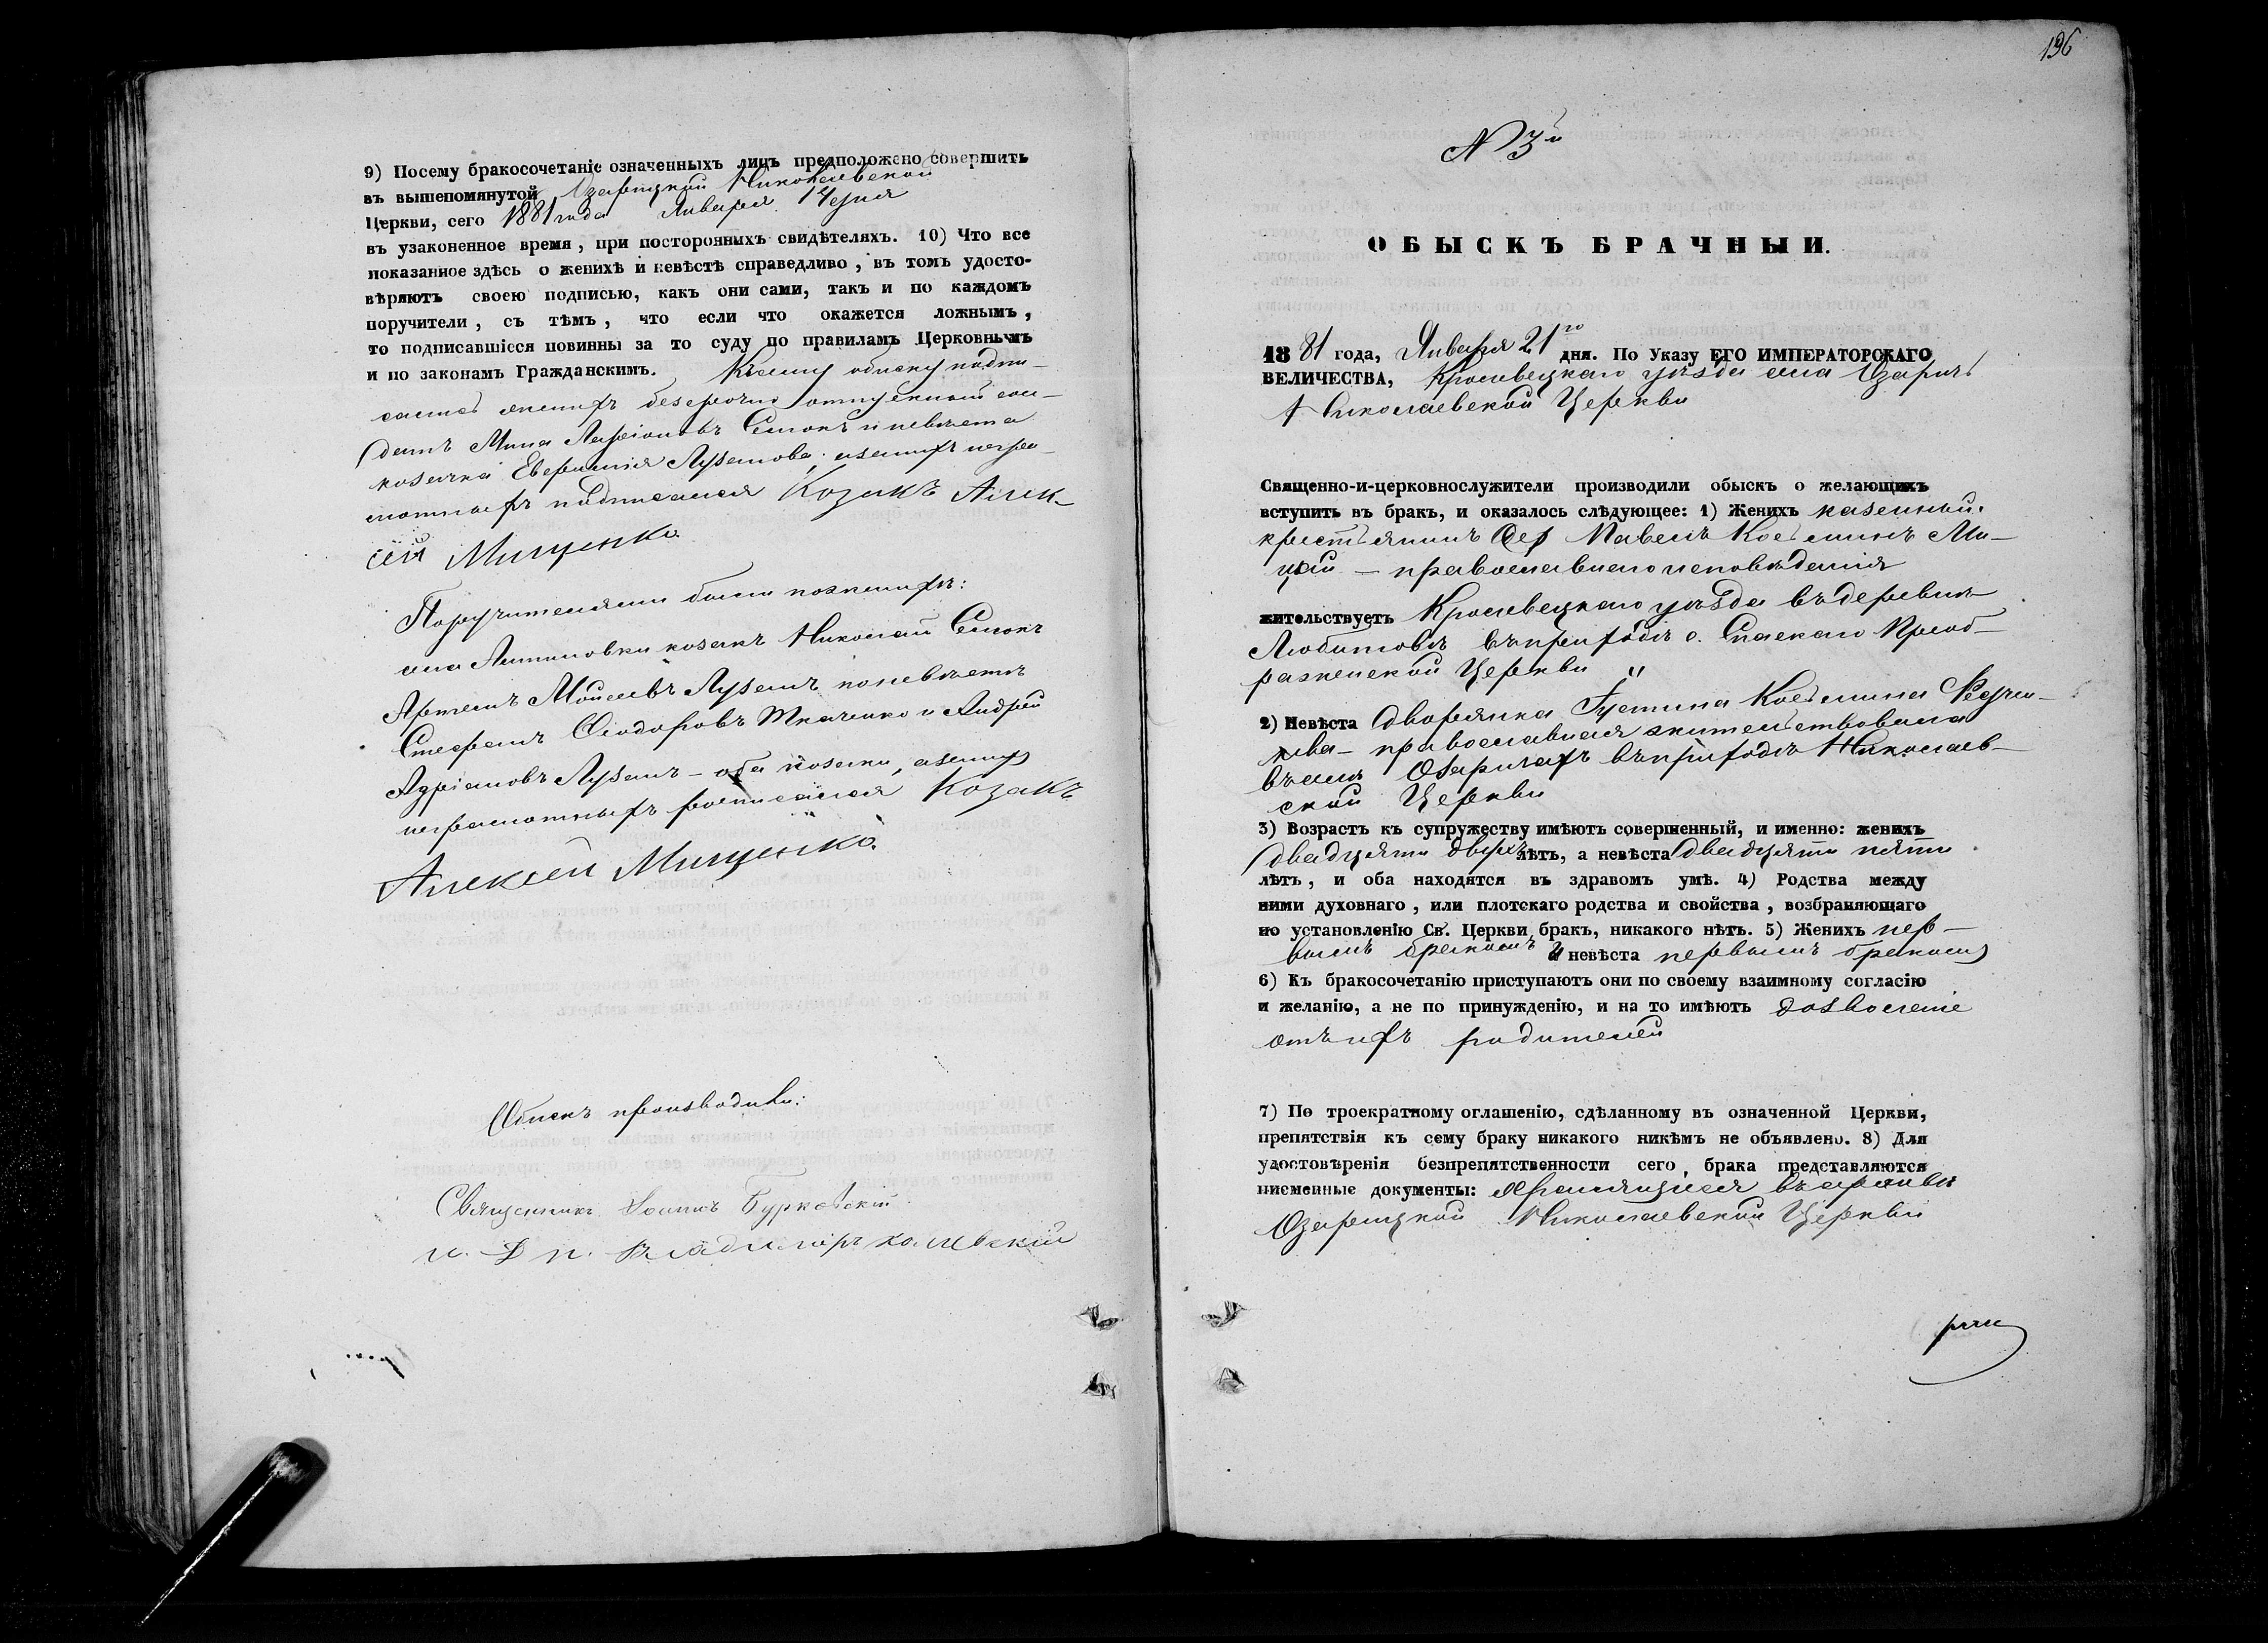 9) Посему бракосочетаніе означенныхъ лицъ предположено совершить
въ вышепомянутой Озарицкой Николаевской
Церкви, сего 1881 года Января 14 дня
въ узаконенное время, при постороннихъ свидѣтеляхъ. 10) Что все
показанное здѣсь о женихѣ и невѣстѣ справедливо, въ томъ удосто-
вѣряютъ своею подписью, какъ они сами, такъ и по каждомъ
поручители, съ тѣмъ, что если что окажется ложнымъ,
то подписавшіеся повинны за то суду по правиламъ Церковнымъ
и по законамъ Гражданскимъ. Къ сему обыску подпи-
сались женихъ безсрочно отпускной сол-
датъ Мина Ларіоновъ Семокъ и невѣста
козачка Евфимія Лузанова, а за нихъ негра-
мотныхъ подписался Козакъ Алек-
сѣй Мищенко
Поручителями были по женихѣ:
села козакъ Николай Семокъ
Артемъ Моисеевъ Лузанъ по невѣстѣ
Стефанъ Ѳеодоровъ Ткаченко и Андрей
Адріановъ Лузанъ – оба козаки, а за нихъ
неграмотныхъ росписался Козакъ
Алексѣй Мищенко.
Обыскъ производили:
Священникъ Іоаннъ Бурковскій
и. д. п. Владиміръ
196
N 3й
ОБЫСКЪ БРАЧНЫЙ.
1881 года, Января 21го дня. По Указу ЕГО ИМПЕРАТОРСКАГО
ВЕЛИЧЕСТВА, Кролевецкаго уѣзда села Озаричъ
Николаевской Церкви
Священно-и-церковнослужители производили обыскъ о желающихъ
вступить въ бракъ, и оказалось слѣдующее: 1) Женихъ казенный
крестьянинъ Павелъ Косьминъ Ми-
цкій – православнаго исповѣданія
жительствуетъ Кролевецкаго уѣзда въ деревнѣ
Любитовѣ въ приходѣ с. Спаскаго Преоб-
раженской Церкви "
2) Невѣста дворянка Густина Косьмина
православная жительствовала
въ селѣ Озаричахъ въ приходѣ Николаев-
ской Церкви
3) Возрастъ къ супружеству имѣютъ совершенный, и именно: женихъ
двадцати двухъ лѣтъ, а невѣста двадцати пяти
лѣтъ, и оба находятся въ здравомъ умѣ. 4) Родства между
ними духовнаго, или плотскаго родства и свойства, возбраняющаго
по установленію Св. Церкви бракъ, никакого нѣтъ. 5) Женихъ пер-
вымъ бракомъ и невѣста первымъ бракомъ
6) Къ бракосочетанію приступаютъ они по своему взаимному согласію
и желанію, а не по принужденію, и на то имѣютъ дозволеніе
отъ ихъ родителей
7) По троекратному оглашенію, сдѣланному въ означенной Церкви,
препятствія къ сему браку никакого никѣмъ не объявлено. 8) Для
удостовѣренія безпрепятственности сего брака представляются
писменные документы: хранящіеся въ архивѣ
Озарицкой Николаевской Церкви